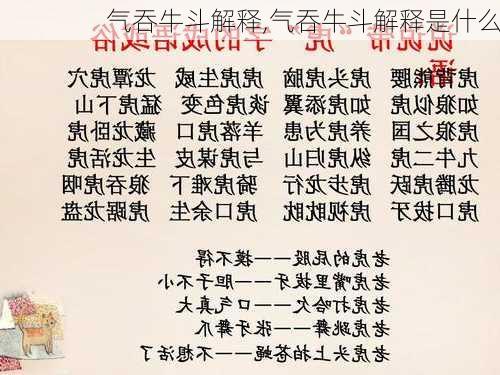 气吞牛斗解释,气吞牛斗解释是什么
说说带“虎”字的成语或俗语
虎背熊腰 虎头虎脑 虎虎生威 龙潭虎穴
如狼似虎 如虎添翼 谈虎色变 猛虎下山
虎狼之国 养虎为患 羊落虎口 藏龙卧虎
九牛二虎 纵虎归山 与虎谋皮 生龙活虎
龙腾虎跃 虎步龙行 骑虎难下 狼吞虎咽
虎口拔牙 虎视眈眈 虎口余生 虎踞龙盘
老虎的屁股———摸不得
老虎嘴里拔牙——胆子不小
老虎打哈欠——口气真大
老虎跳舞——张牙舞爪
老虎头上拍苍蝇——不想活了